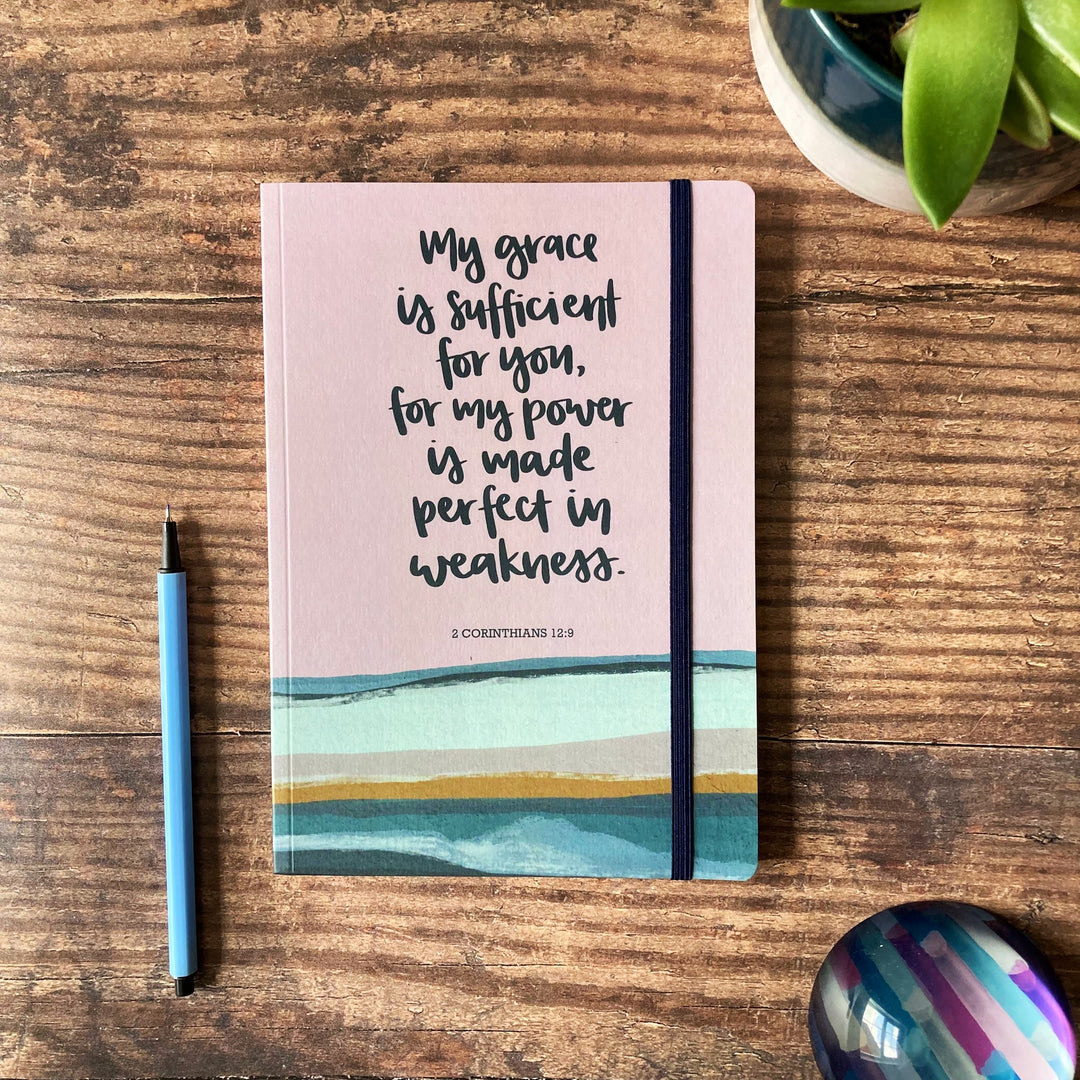 My grace
is sufficient
for you,
for my power
is made
perfect in
weakness.
2 CORINTHIANS 12:9